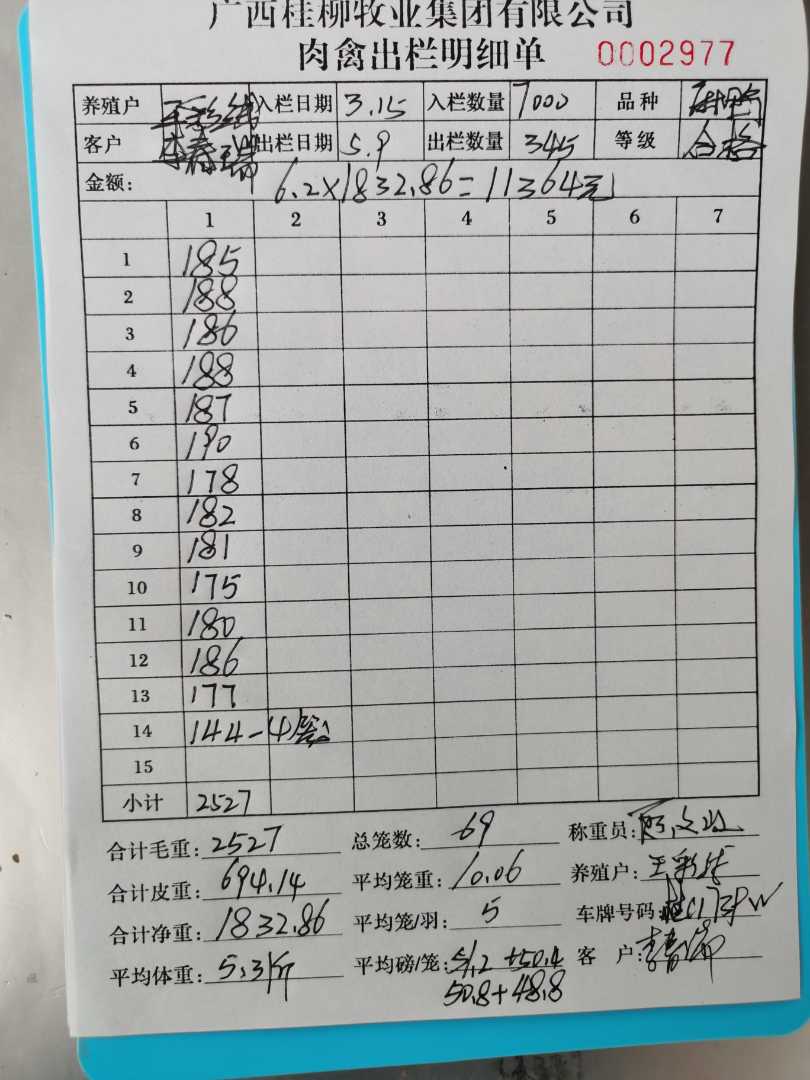 广西桂柳牧业集团有限公司
肉禽出栏明细单 0002977
养殖户 入栏日期 3.15 入栏数量 7000 品种
客户 李春瑞 出栏日期 5.9 出栏数量 345 等级 合格
金额: 6.2×1832.86=11364元
1 2 3 4 5 6 7
1 185
2 188
3 186
4 188
5 187
6 190
7 178
8 182
9 181
10 175
11 180
12 186
13 177
14 144-4笼
15
小计 2527
合计毛重: 2527 总笼数: 69 称重员:
合计皮重: 694.14 平均笼重: 10.06 养殖户: 王
合计净重: 1832.86 平均笼/羽: 5 车牌号码:
平均体重: 5.3斤 平均磅/笼: 51.2+50.4 客户:
50.8+48.8